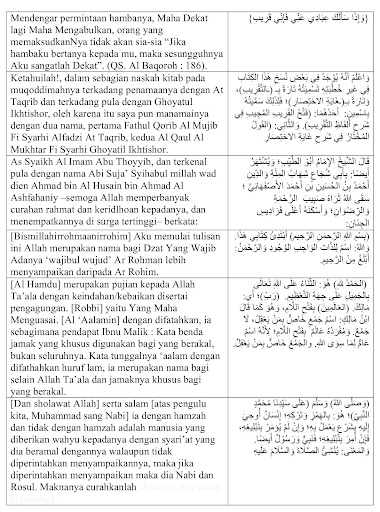 Mendengar permintaan hambanya, Maha Dekat
lagi Maha Mengabulkan, orang yang
memaksudkanNya tidak akan sia-sia “Jika
hambaku bertanya kepada mu, maka sesungguhnya
Aku sangatlah Dekat”. (QS. Al Baqoroh : 186).
{وَإِذَا سَأَلَكَ عِبَادِي عَنِّي فَإِنِّي قَرِيب}
Ketahuilah!, dalam sebagian naskah kitab pada
muqoddimahnya terkadang penamaanya dengan At
Taqrib dan terkadang pula dengan Ghoyatul
Ikhtishor, oleh karena itu saya pun manamainya
dengan dua nama, pertama Fathul Qorib Al Mujib
Fi Syarhi Alfadzi At Taqrib, kedua Al Qaul Al
Mukhtar Fi Syarhi Ghoyatil Ikhtishor.
وَاعْلَمْ أَنَّهُ يُوْجَدُ فِي بَعْضِ نُسَخِ هَذَا الكِتَابِ
فِي غَيْرِ خُطْبَتِهِ تَسْمِيَتُهُ تَارَةً بِـ«التَّقْرِيبِ»،
وَتَارَةً بـ«غَايَةِ الاخْتِصَارِ»؛ فَلِذَلِكَ سَمَّيْتُهُ
بِاسْمَينِ: أَحَدُهُمَا: (فَتْحُ القَرِيبِ المُجِيبِ فِي
شَرْحِ أَلفَاظِ التَّقْرِيبِ). وَالثَّانِي: (القَوْلُ
المُخْتَارُ فِي شَرْحِ غَايَةِ الاخْتِصَارِ
As Syaikh Al Imam Abu Thoyyib, dan terkenal
pula dengan nama Abi Suja’ Syibabul millah wad
dien Ahmad bin Al Husain bin Ahmad Al
Ashfahaniy –semoga Allah memperbanyak
curahan rahmat dan keridhoan kepadanya, dan
menempatkannya di surga tertinggi– berkata:
قَالَ الشَّيْخُ الإِمَامُ أَبُو الطَّيِّبِ؛ وَيَشْتَهِرُ
أَيضًا: بِأَبِي شُجَاعٍ شِهَابُ المِلَّةِ وَالدِّينِ
أَحْمَدُ بْنُ الحُسَيْنِ بنِ أَحْمَدَ الأَصْفَهَانِيُّ -
سَقَى اللهُ ثَرَاهُ صَبِيبَ الرَّحْمَةِ
وَالرِّضْوَانِ؛ وَأَسْكَنَهُ أَعْلَى فَرَادِيسِ
الجِنَانِ:
[Bismillahirrohmaanirrohim] Aku memulai tulisan
ini Allah merupakan nama bagi Dzat Yang Wajib
Adanya ‘wajibul wujud’ Ar Rohman lebih
menyampaikan daripada Ar Rohim.
(بِسْمِ اللهِ الرَّحْمَنِ الرَّحِيمِ) أَبْتَدِئُ كِتَابِي هَذَا.
وَاللهُ: اسْمٌ لِلذَّاتِ الوَاجِبِ الوُجُودِ. وَالرَّحْمَنُ:
أَبْلَغُ مِنَ الرَّحِيمِ.
[Al Hamdu] merupakan pujian kepada Allah
Ta’ala dengan keindahan/kebaikan disertai
pengagungan. [Robbi] yaitu Yang Maha
Menguasai. [Al ‘Aalamin] dengan difatahkan, ia
sebagimana pendapat Ibnu Malik : Kata benda
jamak yang khusus digunakan bagi yang berakal,
bukan seluruhnya. Kata tunggalnya ‘aalam dengan
difathahkan huruf lam, ia merupakan nama bagi
selain Allah Ta’ala dan jamaknya khusus bagi
yang berakal.
(الْحَمْدُ للهِ) هُوَ: الثَّنَاءُ عَلَى اللهِ تَعَالَى
بِالجَمِيلِ عَلَى جِهَةِ التَّعْظِيمِ. (رَبِّ)؛ أي:
مَالِكِ. (الْعَالَمِينَ) بِفَتْحِ اللَّامِ، وَهُوَ كَمَا قَالَ
ابْنُ مَالِكٍ: اسْمُ جَمْعٍ خَاصٌّ بِمَنْ يَعْقِلُ، لَا
جَمْعٌ. وَمُفْرَدُهُ عَالَمٌ بِفَتْحِ اللَّامِ؛ لأنَّهُ اسْمٌ
عَامٌّ لِمَا سِوَى اللهِ. وَالجَمْعُ خَاصٌّ بِمَنْ يَعْقِلُ.
[Dan sholawat Allah] serta salam [atas pengulu
kita, Muhammad sang Nabi] ia dengan hamzah
dan tidak dengan hamzah adalah manusia yang
diberikan wahyu kepadanya dengan syari’at yang
dia beramal dengannya walaupun tidak
diperintahkan menyampaikannya, maka jika
diperintahkan menyampaikan maka dia Nabi dan
Rosul. Maknanya curahkanlah
(وَصَلَّى اللهُ) وَسَلَّمَ (عَلَى سَيِّدِنَا مُحَمَّدٍ
النَّبِيِّ)؛ هُوَ: بِالهَمْزِ وَتَرْكِهِ؛ إِنْسَانٌ أُوحِيَ
إِلَيْهِ بِشَرْعٍ يَعْمَلُ بِهِ؛ وَإِنْ لَمْ يُؤْمَرْ بِتَبْلِيغِهِ،
فَإِنْ أُمِرَ بِتَبْلِيغِهِ؛ فَنَبِيٌّ وَرَسُوْلٌ أَيضًا.
وَالمَعْنَى: يُنْشِئُ